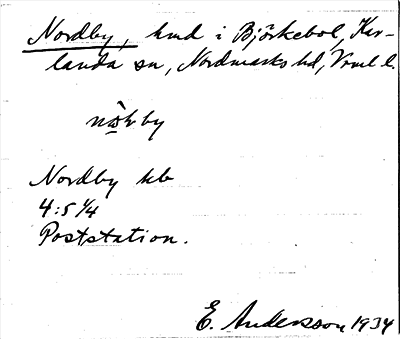 Nordby, hmd i Björkebol, Kar-
landa sn, Nordmarks hd, Vrml l.
Nordby
4:5 1/4
Poststation.
E. Andersson 1934